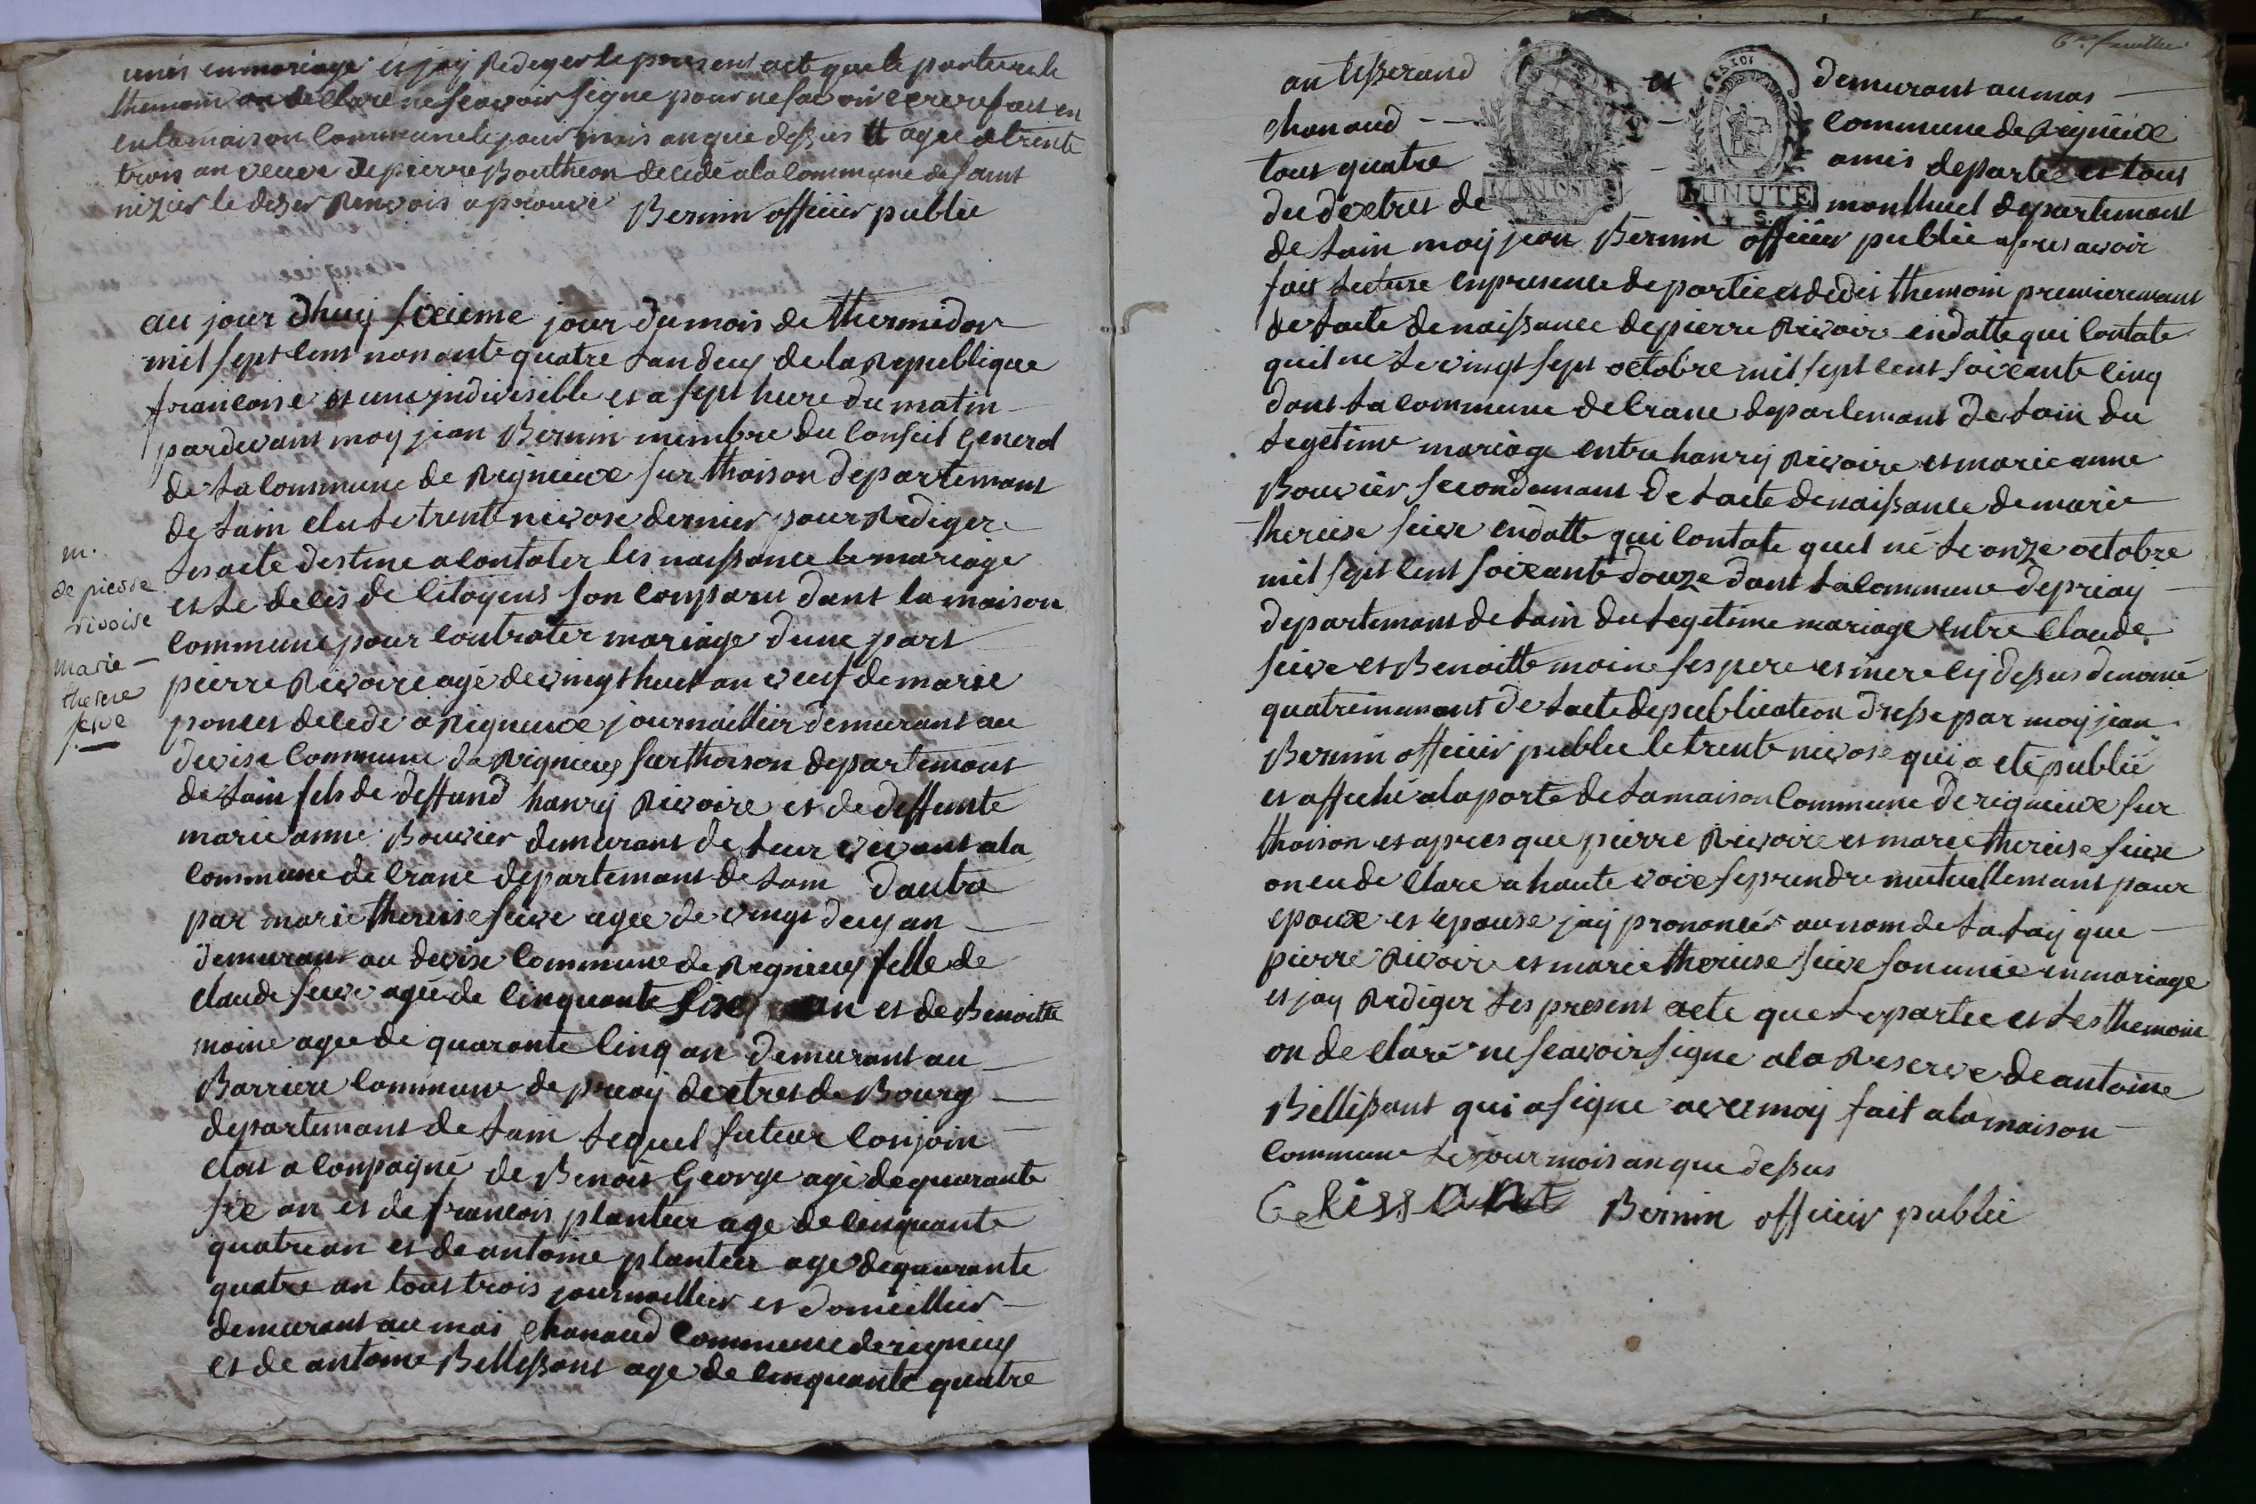 unis en mariage et jay Rediger le present act que le partie et le
themoin on declaré ne scavoir signe pour ne savoir ecrire fait en
en la maison Commune le jour mois an que dessus et agee de trente
trois an veuve de pierre Boutheon décédé a la Commune de saint
nizier le dezer Renvois aprouvé Bernin officier public
au jour dhuy sixieme jour du mois de thermidor
mil sept cent nonante quatre Lan deux de la Republique
francoise et une jndivisible et a sept heure du matin
pardevant moy jean Bernin membre du Conseil General
de La Commune de Rignieux sur thoison departemant
de Lain elu Le trente nivose dernier pour Rediger
Les acte destine a contater les naissance le mariage
et Le déces de Citoyens son Conparu dant la maison
Commune pour Contrater mariage dune part
pierre Rivoire agé de vingt huit an veuf de marie
poncet décédé a Rignieux journaillier demurant au
devise Commune de Rignieux sur thoison departemant
de Lain fils de deffand hanry Rivoire et de deffunte
marie anne Bouvier demurant de Leur vivant a la
Commune de Crane departemant de Lain dautre
par marie thereise seive agee de vingt deux an
demurant au devise Commune de Rignieux fille de
claude seive agee de Cinquante six an et de Benoitte
moine agee de quarante Cinq an demurant au
Barriere Commune de priay dextret de Bourg
departemant de Lain Lequel futeur Conjoin
etoit aConpagné de Benoit George agé de quarante
six an et de francois planteur age de Cinquante
quatre an et de antoine planteu age de quarante
quatre an tous trois journaillier et domicillier
demurant au mas chanaud Commune de rignieux
et de antoine Bellissant age de Cinquante quatre
m.
de pierre
rivoire
marie
therere
seive
6me feuillet
an tisserand et demurant au mas
chanaud Commune de Rignieux
tous quatre amis de partie et tous
du dextret de montluel departemant
MINUTE
de Lain moy jean Bernin officier public apres avoir
fait Lecture en presence de partie et de dit themoin premieremant
de Lacte de naissance de pierre Rivoire en datte qui Contate
quil né Le vingt sept octobre mil sept cent soixante Cinq
dant La commune de Crane departemant de Lain du
Legetime mariage entre hanry Rivoire et marie anne
Bouvier secondemant de Lacte de naissance de marie
thereise seive en datte qui Contate quel né Le onze octobre
mil sept cent soixante douze dant La Commune de priay
departemant de Lain du Legetime mariage entre Claude
seive et Benoitte moine ses pere et mere cy dessus denomé
quatriememant de Lacte de publication dresse par moy jean
Bernin officier public le trente nivose qui a eté publié
et affiché a la porte de La maison Commune de rignieux sur
thoison et apres que pierre Rivoire et marie thereise seive
on eu de Clare a haute voix se prendre mutuellemant pour
epoux et epouse jay prononcer au nom de La Loy que
pierre Rivoire et marie thereise seive son unie en mariage
et jay Rediger Les present acte que Le partie et Les themoin
on de claré ne scavoir signe a la Reserve de antoine
Bellissant qui a signe avec moy fait a la maison
Commune Le jour mois an que dessus
Belissant Bernin officier public